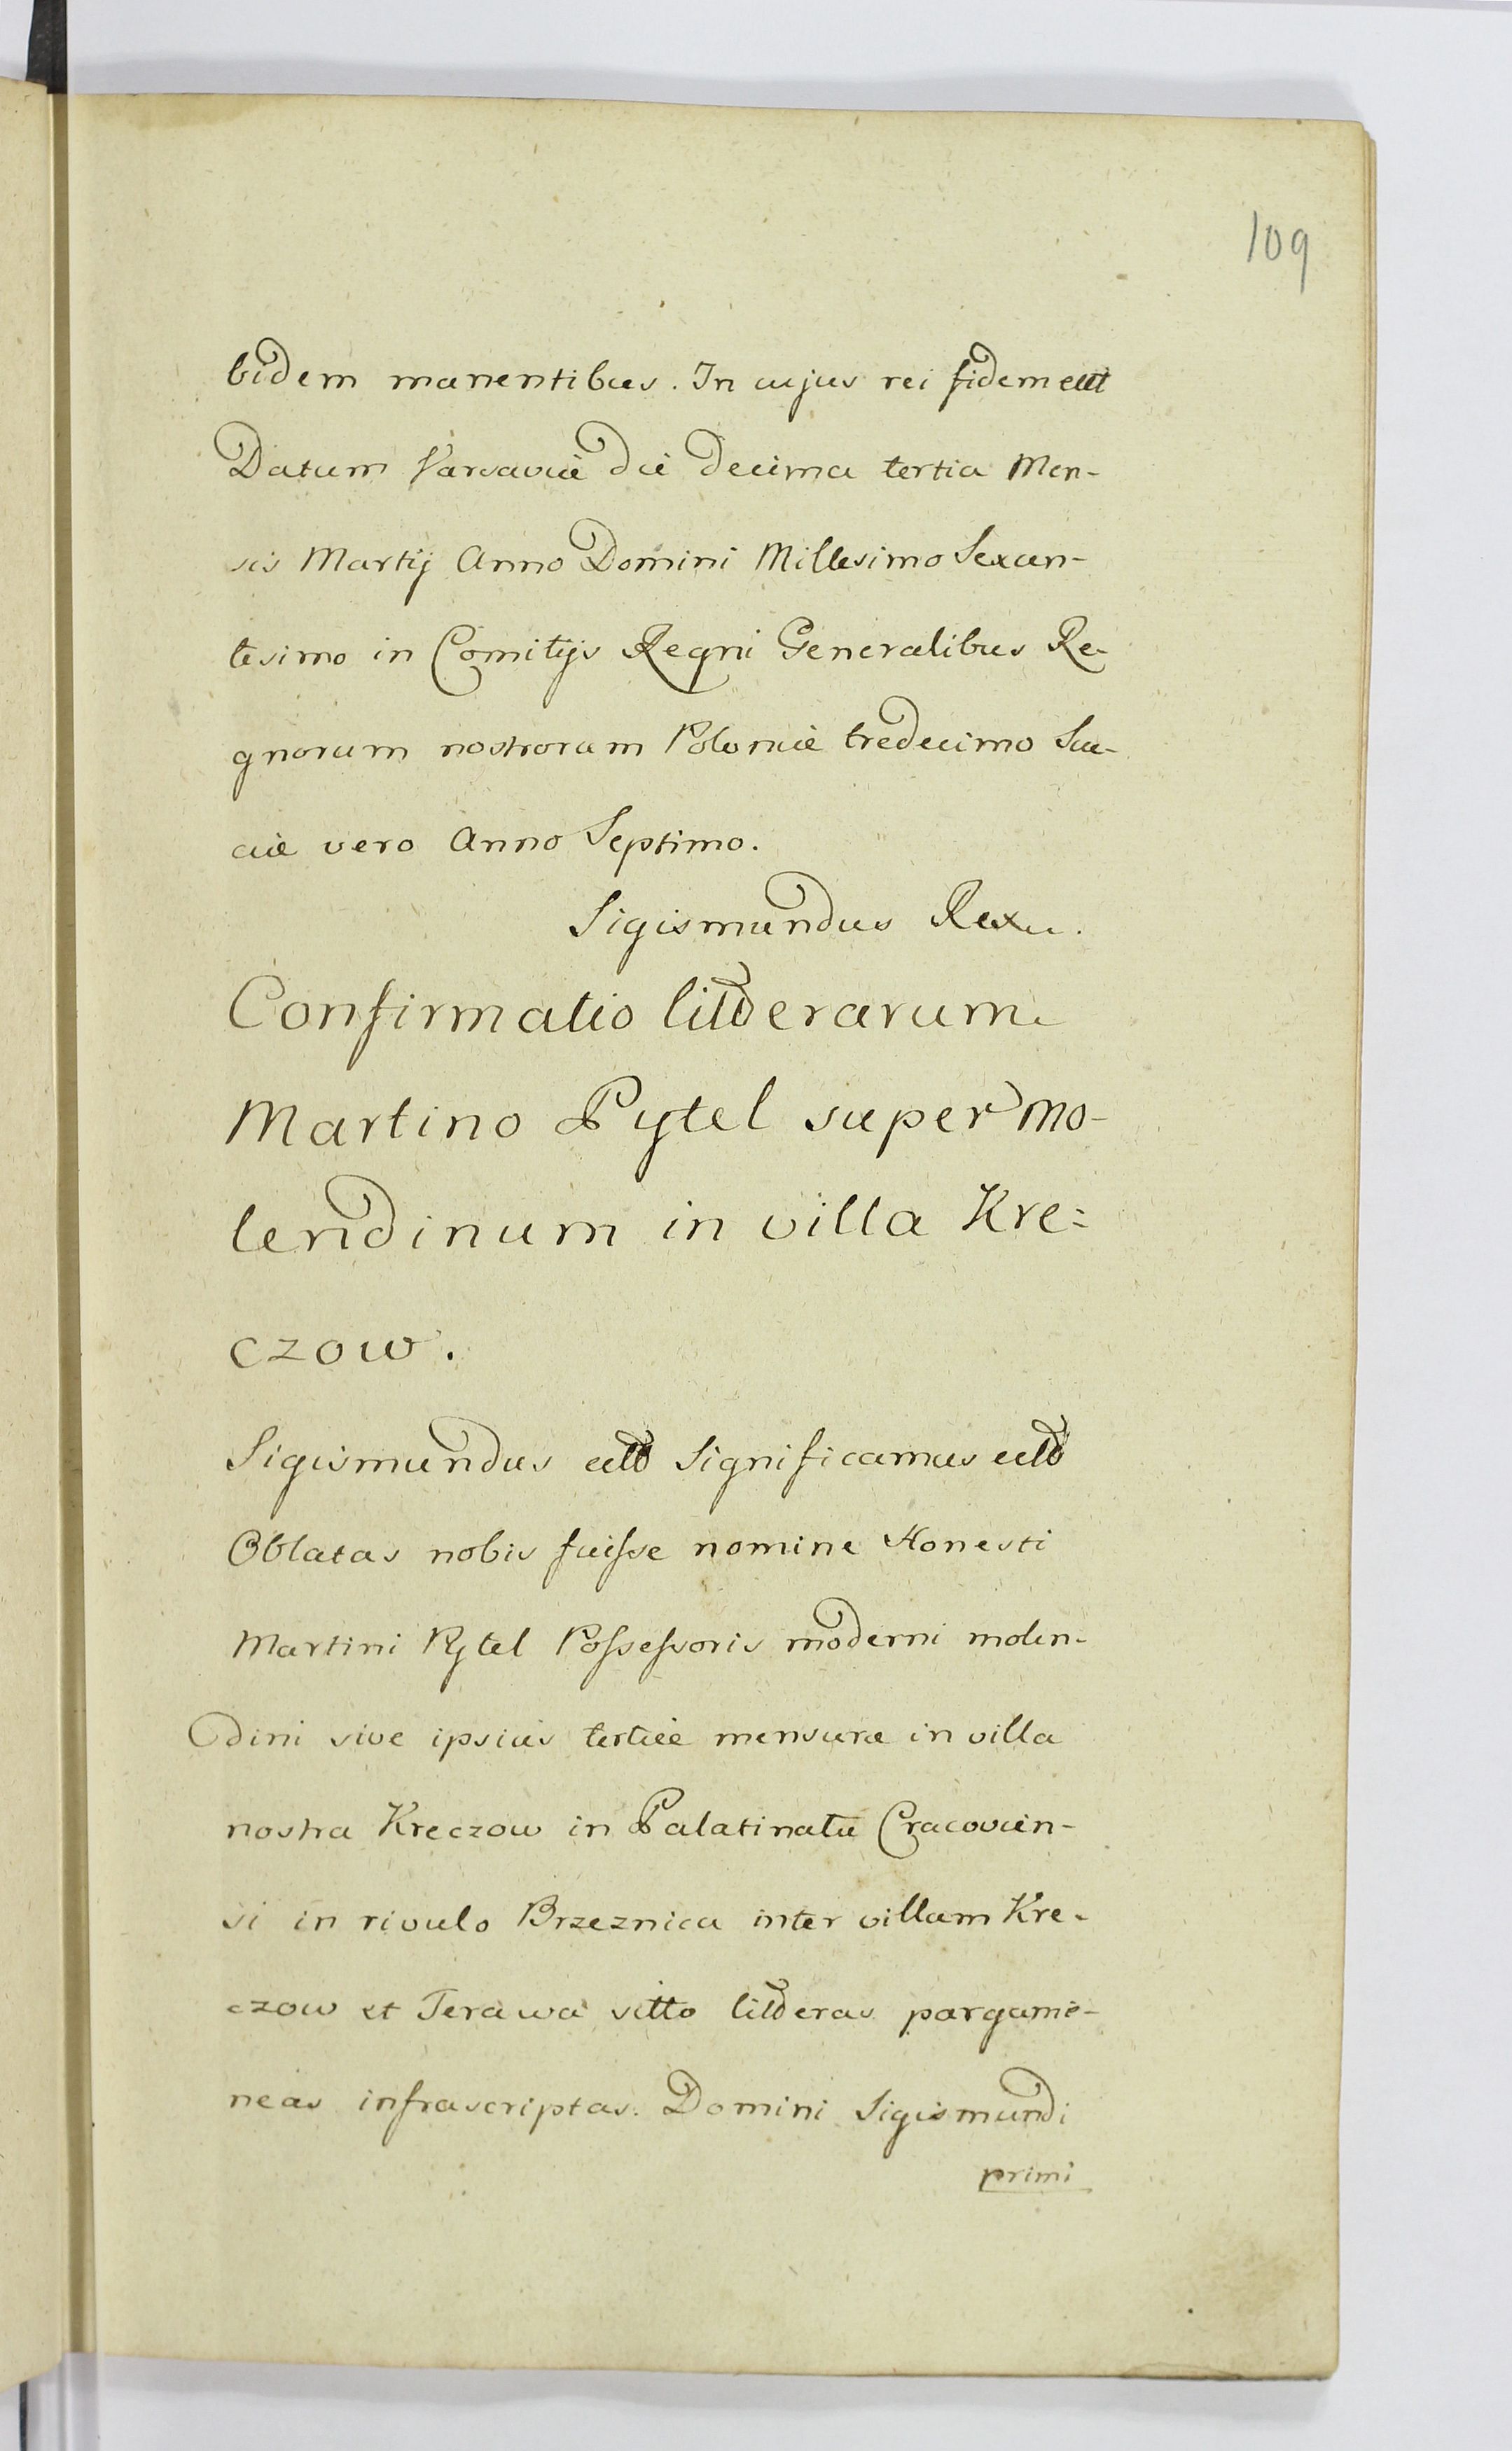 109
bidem manentibus. In cujus rei fidem ett
Datum Varsaviæ die decima tertia Men-
sis Martij Anno Domini Millesimo Sexcen-
tesimo in Comitijs Regni Generalibus Re-
gnorum nostrorum Poloniæ tredecimo Sue-
ciæ vero Anno Septimo.
Sigismundus Rex.
Confirmatio litterarum
Martino Pytel super Mo-
lendinum in villa Kre=
czow.
Sigismundus ett Significamus ett
Oblatas nobis fuisse nomine Honesti
Martini Pytel Possessoris moderni molen-
dini sive ipsius tertiæ mensuræ in villa
nostra Kreczow in Palatinatu Cracovien-
si in rivulo Brzeznica inter villam Kre-
czow et Terawa sitto litteras pargame-
neas infrascriptas. Domini Sigismundi
primi